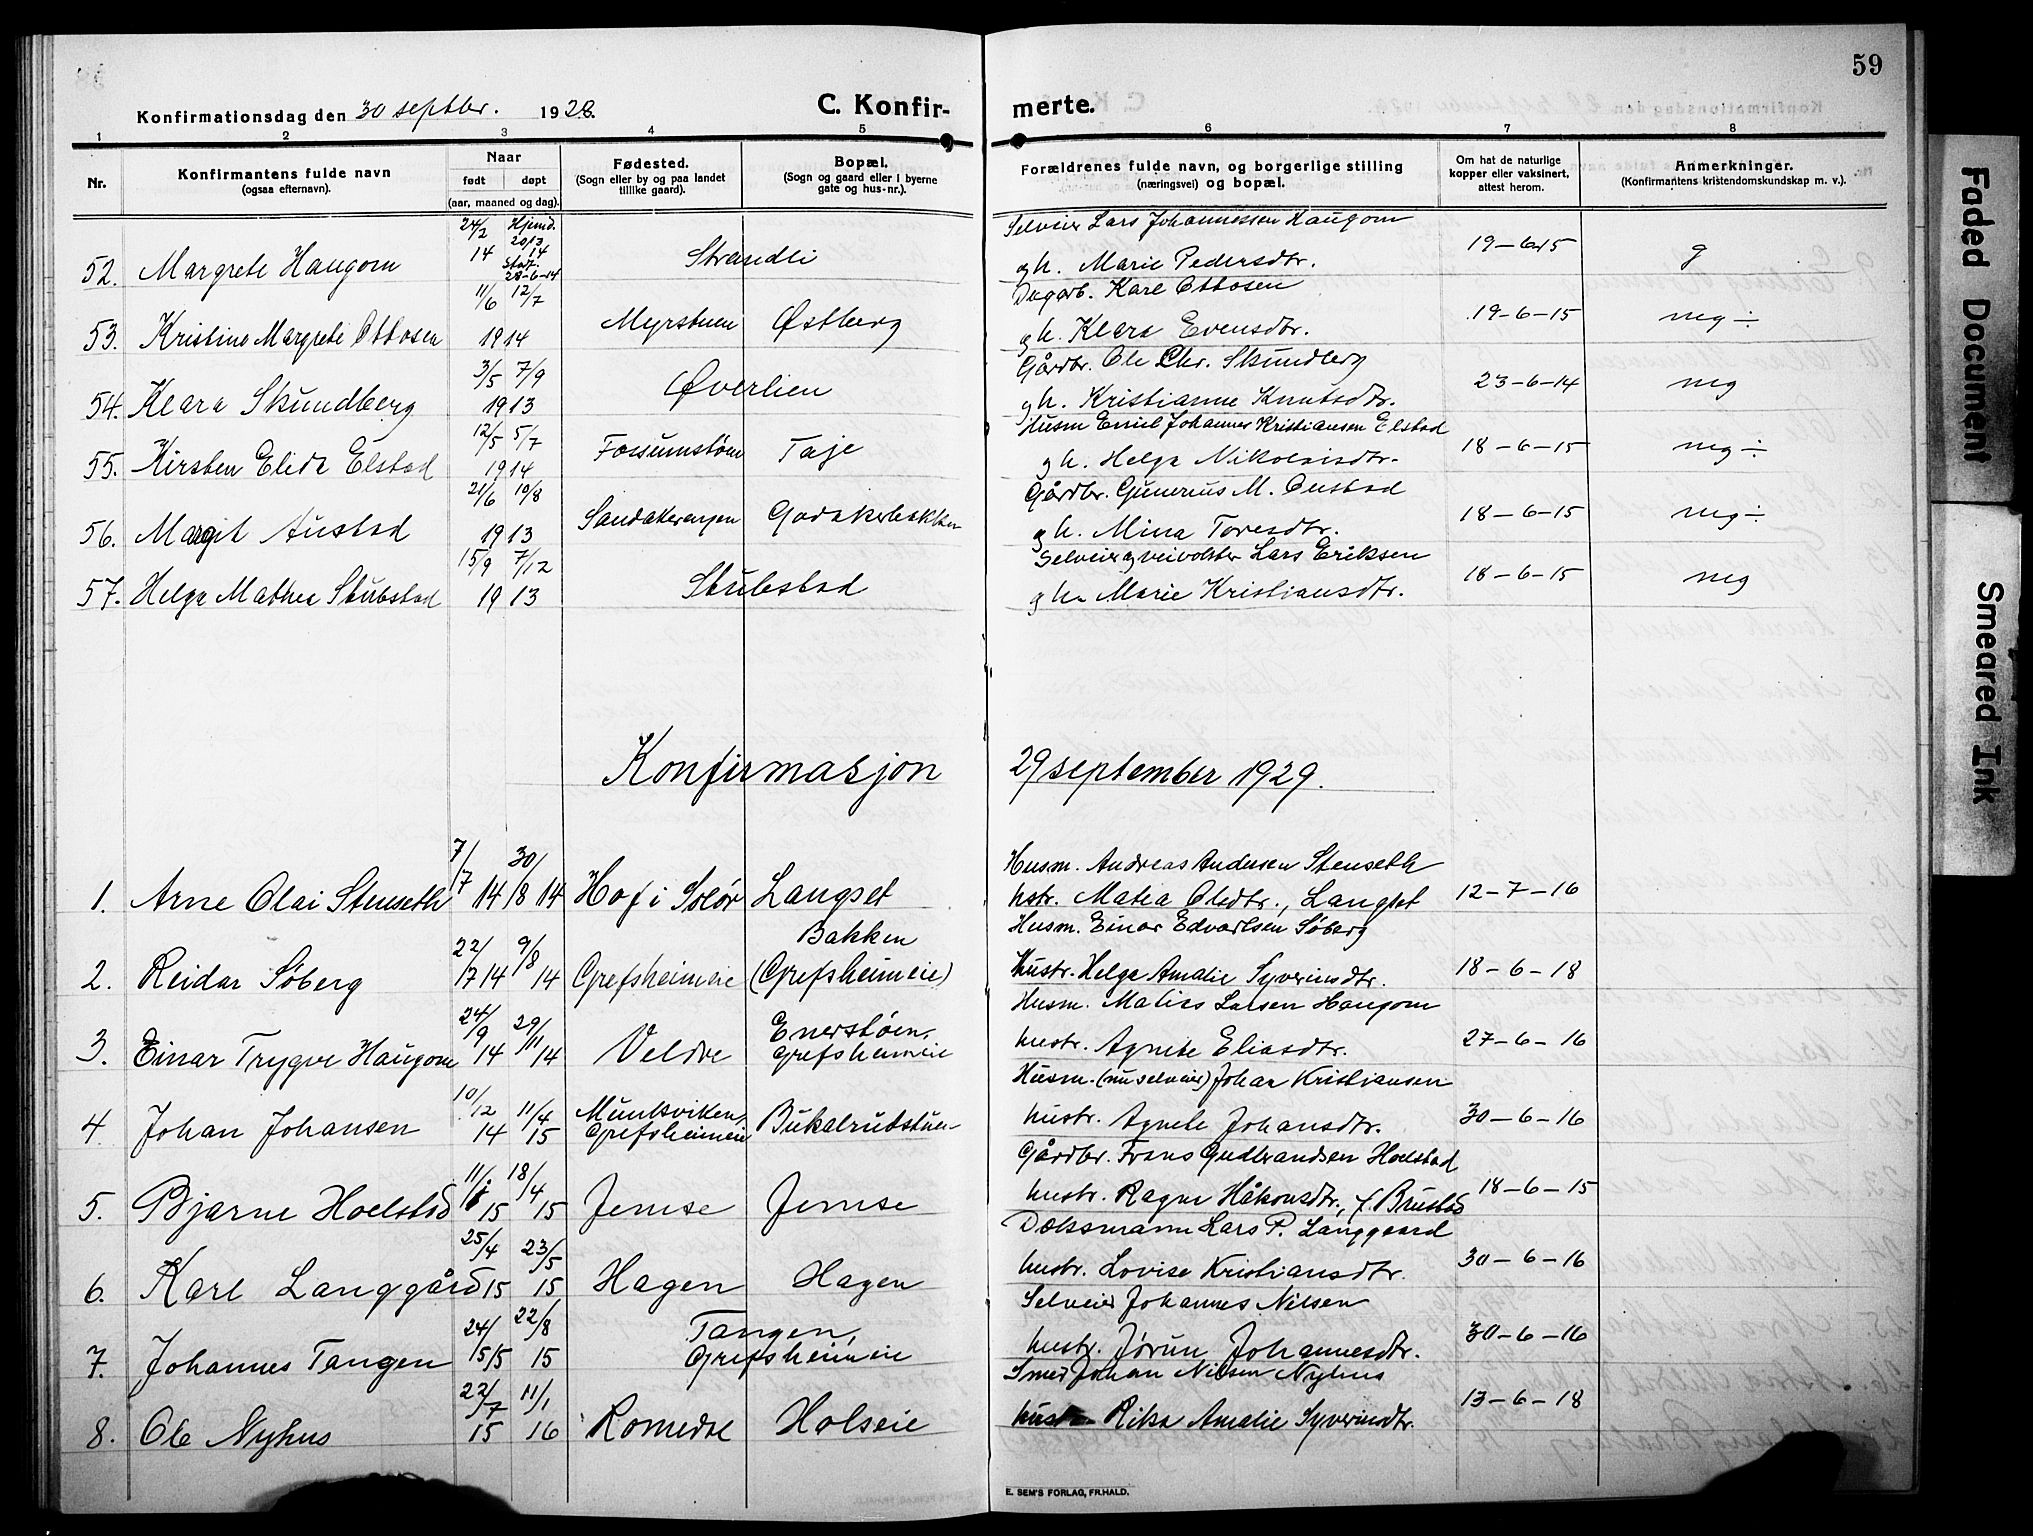 59
Konfirmationsdag den 30 septbr. 1928. C. Konfir- merte.
1 2 3 4 5 6 7 8
Nr. Konfirmantens fulde navn (ogsaa efternavn). Naar født døpt (aar, maaned og dag). Fødested. (Sogn eller by og paa landet tillike gaard). Bopæl. (Sogn og gaard eller i byerne gate og hus-nr.). Forældrenes fulde navn, og borgerlige stilling (næringsvei) og bopæl. Om hat de naturlige kopper eller vaksinert, attest herom. Anmerkninger. (Konfirmantens kristendomskundskap m. v.).
24/2 Hjemd. 20/3 Selveier Lars Johannessen Haugom
52. Margrete Haugom 14 14 Stadf. 28-6-14 Strandli og h. Marie Pedersdtr. 19-6-15 g
11/6 12/7 Dagarb. Karl Ottosen
53. Kristine Margrete Ottosen 1914 Myrstuen Østberg og h. Klara Evensdtr. 19-6-15 neg ÷
3/5 7/9 Gårdbr. Ole Chr. Skundberg
54. Klara Skundberg 1913 Øverlien og h. Kristianne Knutsdtr. 23-6-14 neg
12/5 5/7 Husm Emil Johannes Kristiansen Elstad
55. Kirsten Elida Elstad 1914 Fossumstøen Taje og h. Helga Nikolaisdtr. 18-6-15 neg ÷
21/6 10/8 Gårdbr. Gunerius M. Austad
56. Margit Austad 1913 Sandakerengen Godakerbakken og h. Mina Toresdtr. 18-6-15 neg ÷
15/9 7/12 Selveier og veivokter Lars Eriksen
57. Helga Mathea Stubstad 1913 Stubstad og h. Marie Kristiansdtr. 18-6-15 neg
Konfirmasjon 29 september 1929.
7/7 30/8 Husm. Andreas Andersen Stenseth
1. Arne Olai Stenseth 14 14 Hof i Solør Langset hstr. Matea Olsdtr., Langset 12-7-16
22/7 9/8 Bakken Husm. Einar Edvartsen Søberg
2. Reidar Søberg 14 14 Grefsheimeie (Grefsheimeie) Hustr. Helga Amalie Syverinsdtr. 18-6-18
24/9 29/11 Enerstøen, Husm. Matias Larsen Haugom
3. Einar Trygve Haugom 14 14 Veldre Grefsheimeie hustr. Agnete Eliasdtr. 27-6-16
10/12 11/4 Munksviken, Husm. (nu selveier) Johan Kristiansen
4. Johan Johansen 14 15 Grefsheimeie Bukalrudstuen hustr. Agnete Johansdtr. 30-6-16
11/1 18/4 Gårdbr. Frans Gudbrandsen Hoelstad
5. Bjarne Hoelstad 15 15 Jemse Jemse hustr. Ragna Håkonsdtr., f. Brustad 18-6-15
25/4 23/5 Dæksmann Lars P. Langgaard
6. Karl Langgård 15 15 Hagen Hagen hustr. Lovise Kristiansdtr. 30-6-16
24/5 22/8 Tangen, Selveier Johannes Nilsen
7. Johannes Tangen 15 15 Grefsheimeie hustr. Jørun Johannesdtr. 30-6-16
22/7 11/1 Smed Johan Nilsen Nyhus
8. Ole Nyhus 15 16 Romedal Holseie hustr. Rika Amalie Syverinsdtr. 13-6-18
E. SEM'S FORLAG, FR.HALD.
Faded Document
Smeared Ink